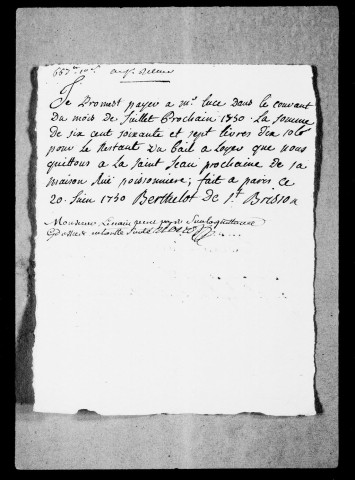 667ᵗᵗ 10ˢ
Je Promet payer a mʳ. Luce dans le courant
Du mois de Juillet Prochain 1750 La somme
de six cent soixante et sept livres dix sols
pour le Restant Du Bail a Loyer que nous
quittons a La Saint Jean prochaine de sa
maison Rüe poissonniere; fait a paris ce
20. Juin 1750 Berthelot de Sᵗ. Brisson
Monsieur Lenain peut payer